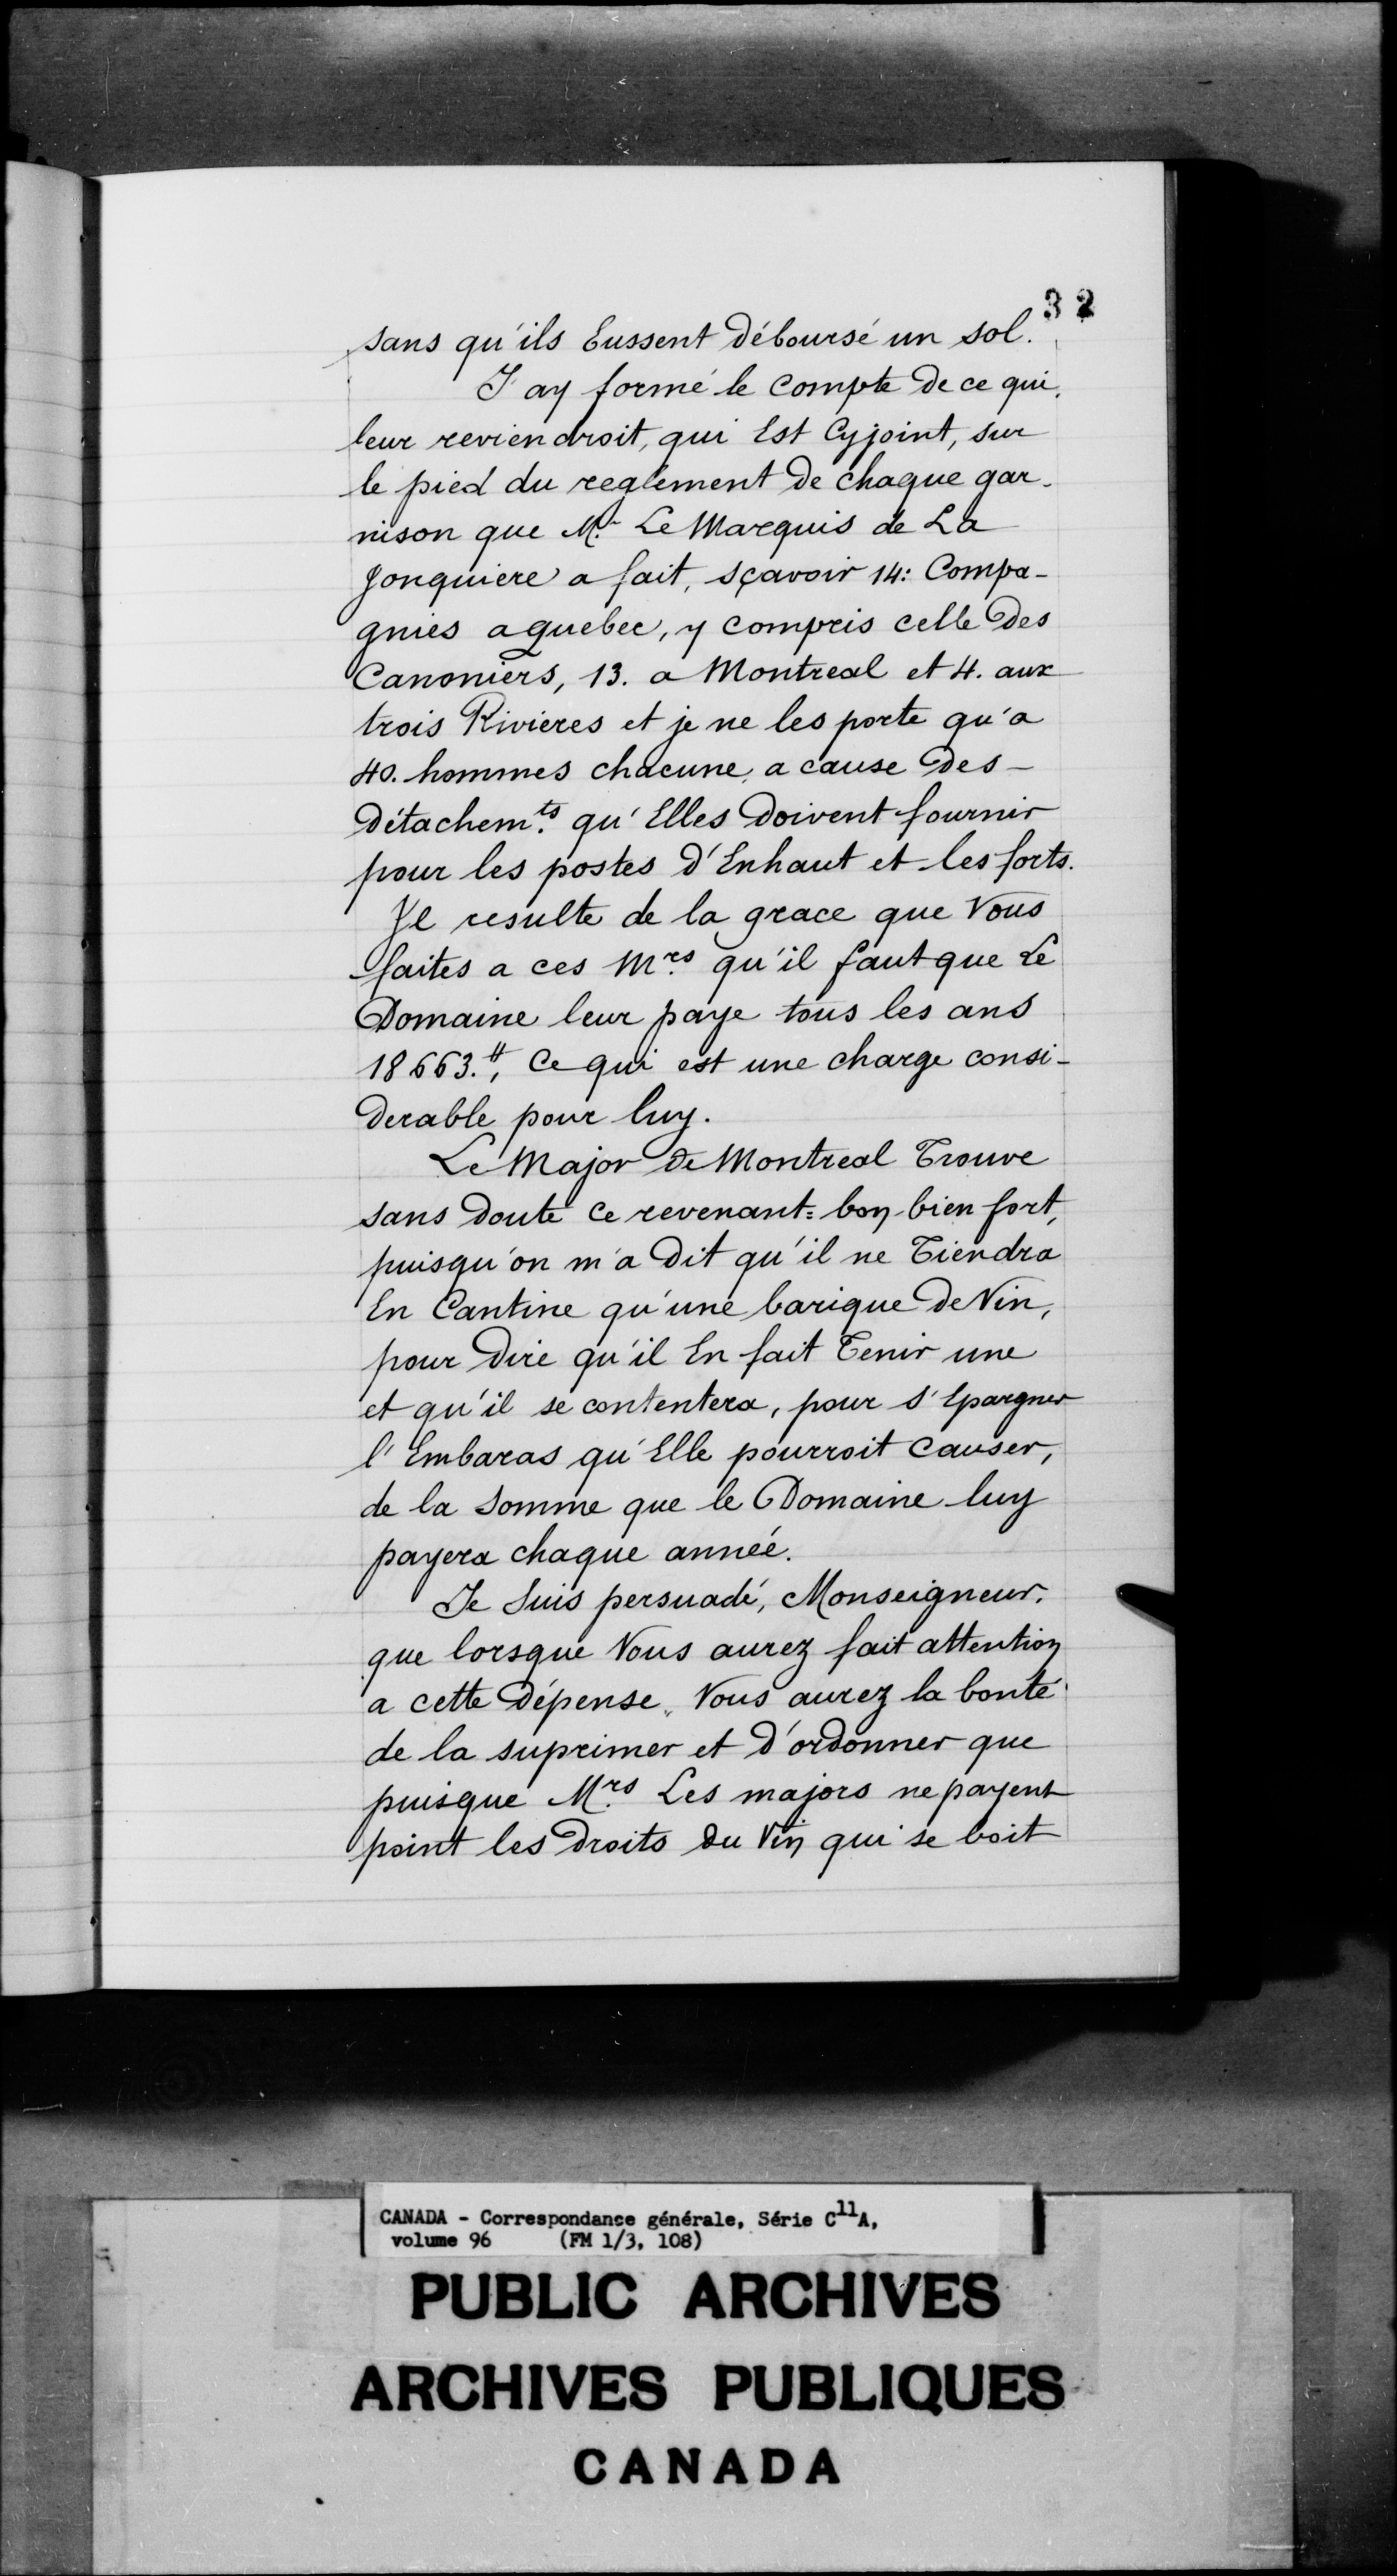 32
sans qu'ils Eussent Déboursé un sol.
J'ay formé le compte De ce qui
leur reviendroit, qui Est Cyjoint, sur
le pied du reglement De chaque gar-
nison que Mr. Le Marquis de La
Jonquiere a fait, sçavoir 14: Compa-
gnies a quebec, y compris celle Des
Canoniers, 13. a Montreal et 4. aux
trois Rivieres et je ne les porte qu'a
40. hommes chacune, a cause Des-
Détachem.ts qu'Elles Doivent fournir
pour les postes d'Enhaut et les forts.
Il resulte de la grace que Vous
faites a ces Mrs. qu'il faut que Le
Domaine leur paye tous les ans
18663.₶, Ce qui est une charge consi-
Derable pour luy.
Le Major De Montreal Trouve
sans Doute Ce revenant=bon bien fort,
puisqu'on m'a Dit qu'il ne Tiendra
En Cantine qu'une barique De Vin,
pour Dire qu'il En fait Tenir une
et qu'il se contentera, pour s'Epargner
l'Embaras qu'Elle pourroit causer,
de la Somme que le Domaine luy
payera chaque année.
Je Suis persuadé, Monseigneur,
que lorsque Vous aurez fait attention
a cette Dépense, Vous aurez la bonté
de la suprimer et D'ordonner que
puisque Mrs. Les majors ne payent
point les Droits Du Vin qui se boit
CANADA - Correspondance générale, Série C11A,
volume 96 (FM 1/3, 108)
PUBLIC ARCHIVES
ARCHIVES PUBLIQUES
CANADA